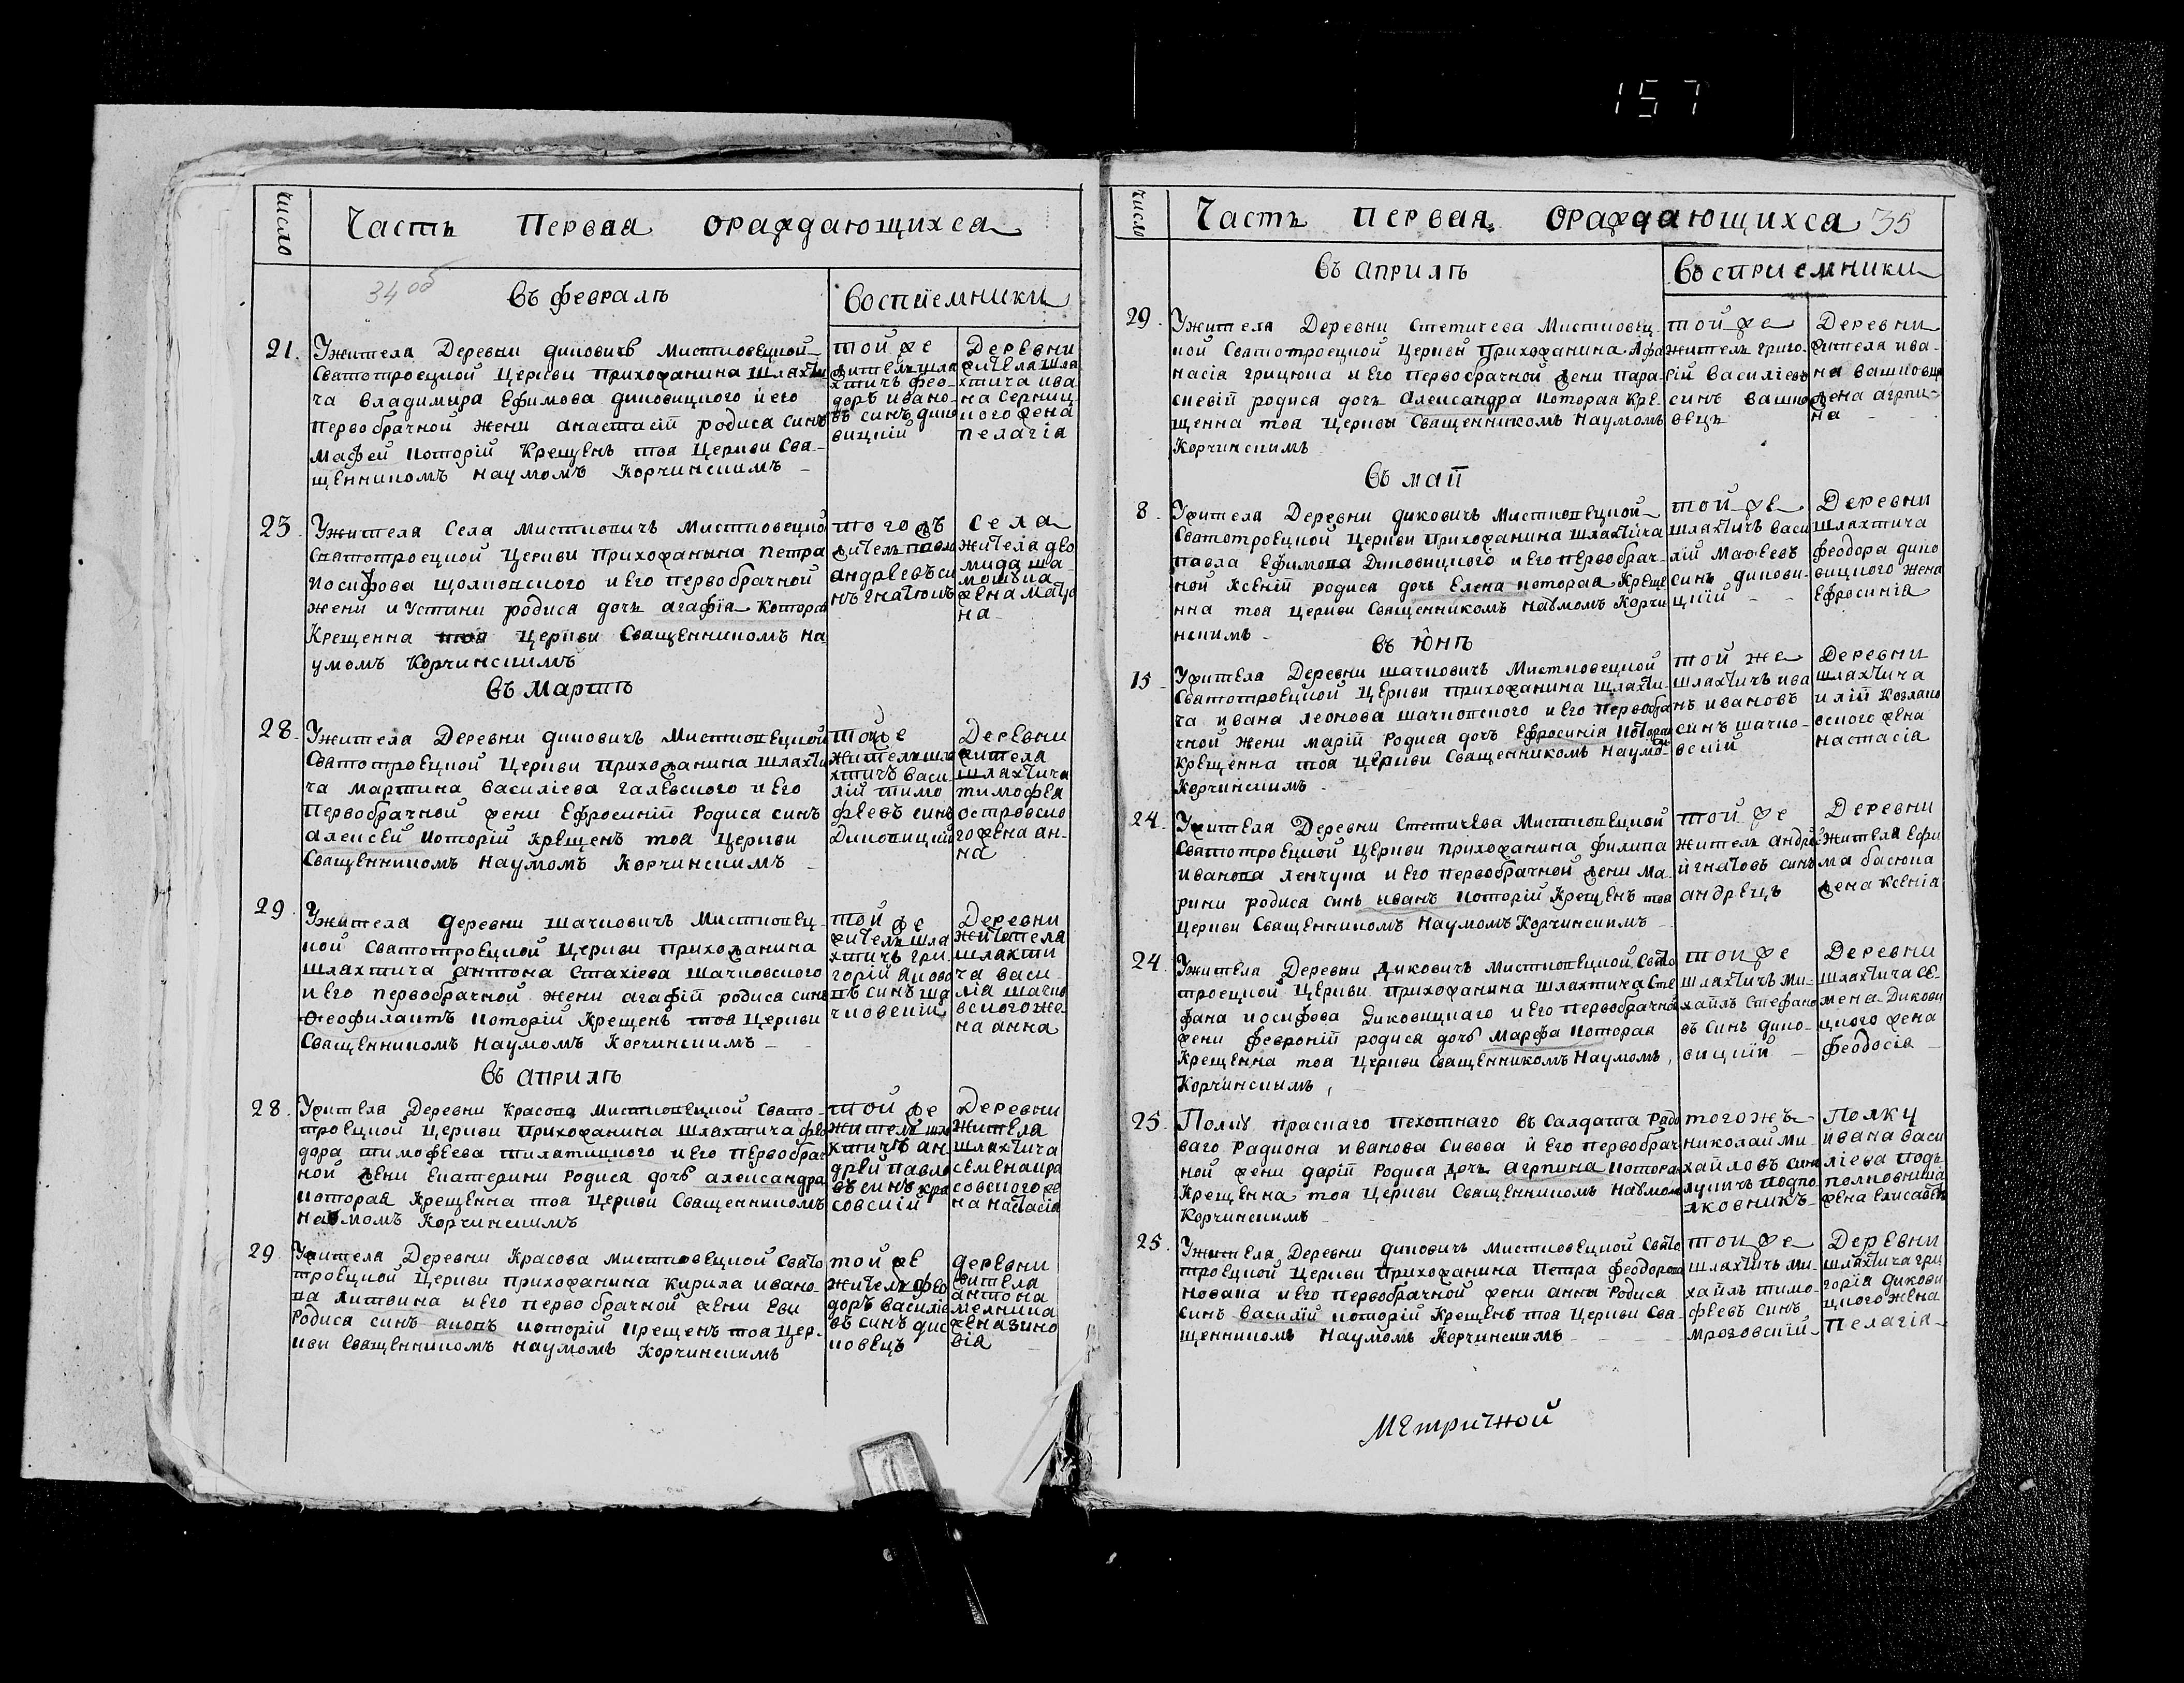 157
число
Часть Первая ораждающихся
34 об
въ февралѣ
воспиемники
21.
Ужителя Деревни диковичъ Мистковецкой
Святотроецкой Церкви прихожанина шляхти
ча Владимира Ефимова диковицкого и его
Первобрачной жени анастасій родися синъ
Мафей которій Крещенъ тоя Церкви Свя-
щенникомъ Наумомъ Корчинскимъ
той же
житель шля
хтичъ фео-
доръ ивано-
въ синъ дико
вицкій
Деревни
жителя шля
хтича ива
на Серниц
кого жена
пелагія
23
Ужителя Села Мистковичъ Мистковецко
Святотроецкой Церкви прихожанына Петра
Иосифова щолковского и его первобрачной
жени иУстини родися дочь агафія которая
Крещенна тоя Церкви Священникомъ На
умомъ Корчинскимъ
тогожъ
житель павло
андрѣевъ си
нъ гнатюкъ
Села
жителя дѣо
мида ша-
мошука
жена матро
на
въ Мартѣ
28.
Ужителя Деревни диковичъ Мистковецкой
Святотроецкой Церкви прихожанина шляхти
ча Мартина Василіева галевского и его
Первобрачной жени Ефросиній Родися синъ
алексей которій Крещенъ тоя Церкви
Священникомъ Наумомъ Корчинскимъ
тойже
житель шля
хтичъ васи-
лій тимо
феевъ синъ
Диковицкій
Деревни
жителя
шляхтича
тимофея
островско
го жена ан-
на
29
Ужителя деревни шачковичъ Мистковец-
кой Святотроецкой Церкви прихожанина
шляхтича антона Стахіева шачковского
и его первобрачной жени агафій родися синъ
Феофилактъ которій Крещенъ тоя Церкви
Священникомъ Наумомъ Корчинскимъ
той же
житель шля
хтичъ гри-
горій яково
въ синъ ша
чковскій
Деревни
жителя
шляхти
ча васи-
лія шачко
вского же-
на анна
въ априлѣ
28.
Ужителя Деревни Красова Мистковецкой Свято-
троецкой Церкви прихожанина шляхтича фео
дора тимофеева тилятицкого и его первобрач
ной жени Екатерини Родися дочь александра
которая Крещенна тоя Церкви Священникомъ
Наумомъ Корчинскимъ
той же
житель шля
хтичъ ан-
дрей павло
въ синъ кра
совскій
Деревни
жителя
шляхтича
семена кра
совского же
на настасія
29.
Ужителя Деревни Красова Мистковецкой Свято
троецкой Церкви прихожанина Кирила ивано-
ва литвина и его первобрачной жени Еви
Родися синъ якопъ которій крещенъ тоя Цер-
кви Священникомъ Наумомъ Корчинскимъ
той же
житель фео
доръ василіе
въ синъ
ковецъ
деревни
жителя
антона
мелника
жена зино
вія
число
Часть первая ораждающихся 35
въ априлѣ
восприемники
29.
Ужителя Деревни Стетичева Мистковец-
кой Святотроецкой Церкви прихожанина Афа
насія грицюка и его первобрачной жени пара-
скевій родися дочь Александра которая Кре-
щенна тоя Церкви Священникомъ Наумомъ
Корчинскимъ
той же
житель григо-
рій василіевъ
синъ вашко
вецъ
Деревни
жителя ива-
на вашковца
жена агрпи-
на
въ май
8.
Ужителя Деревни диковичъ Мистковецкой
Святотроецкой Церкви прихожанина шляхтича
павла Ефимова Диковицкого и его первобрач-
ной Ксеній родися дочь Елена которая Креще
нна тоя Церкви Священникомъ Наумомъ Корчи
нскимъ
той же
шляхтичъ васи
лій Мафеевъ
синъ дикови-
цкій
Деревни
шляхтича
феодора дико
вицкого жена
Ефросинія
въ Юнѣ
15
Ужителя Деревни шачковичъ Мистковецкой
Святотроецкой Церкви прихожанина шляхти-
ча ивана леонова шачковского и его первобра
чной жени марій Родися дочь Ефросинія которая
Крещенна тоя Церкви Священникомъ Наумомъ
Корчинскимъ
той же
шляхтичъ ива
нъ ивановъ
синъ шачко-
вскій
Деревни
шляхтича
илій козляко
вского жена
настасія
24.
Ужителя Деревни Стетичева Мистковецкой
Святотроецкой Церкви прихожанина филипа
иванова ленчука и его первобрачной жени Ма-
рини родися синъ иванъ которій Крещенъ тоя
Церкви Священникомъ Наумомъ Корчинскимъ
той же
житель андре
й гнатовъ синъ
андрецъ
Деревни
жителя Ефи
ма басюка
жена Ксенія
24.
Ужителя Деревни Диковичъ Мистковецкой Свято
троецкой Церкви прихожанина шляхтича Сте
фана иосифова Диковицкаго и его Первобрачной
жени Февроній родися дочь Марфа которая
Крещенна тоя Церкви Священникомъ Наумомъ
Корчинскимъ
той же
шляхтичъ Ми-
хаилъ Стефано
въ синъ дико-
вицкій
Деревни
шляхтича се-
мена Дикови
цкого жена
Феодосія
25.
Полку праснаго пехотнаго въ Салдата Рядо
ваго Радиона иванова Сивова и его первобрач
ной жени дарій Родися дочь агрпина которая
Крещенна тоя Церкви Священникомъ Наумомъ
Корчинскимъ
тогожъ
николай ми-
хайловъ синъ
подпо
лковникъ
Полку
ивана васи
ліева подъ
полковника
жена Елисавета
25.
Ужителя Деревни диковичъ Мистковецкой Свято
троецкой Церкви прихожанина Петра Феодорова
Новака и его первобрачной жени анны Родися
синъ василій которій Крещенъ тоя Церкви Свя-
щенникомъ Наумомъ Корчинскимъ
той же
шляхтичъ ми-
хаилъ тимо-
феевъ синъ
мроговскій
Деревни
шляхтича гри
горія дикови
цкого жена
Пелагія
Метричной